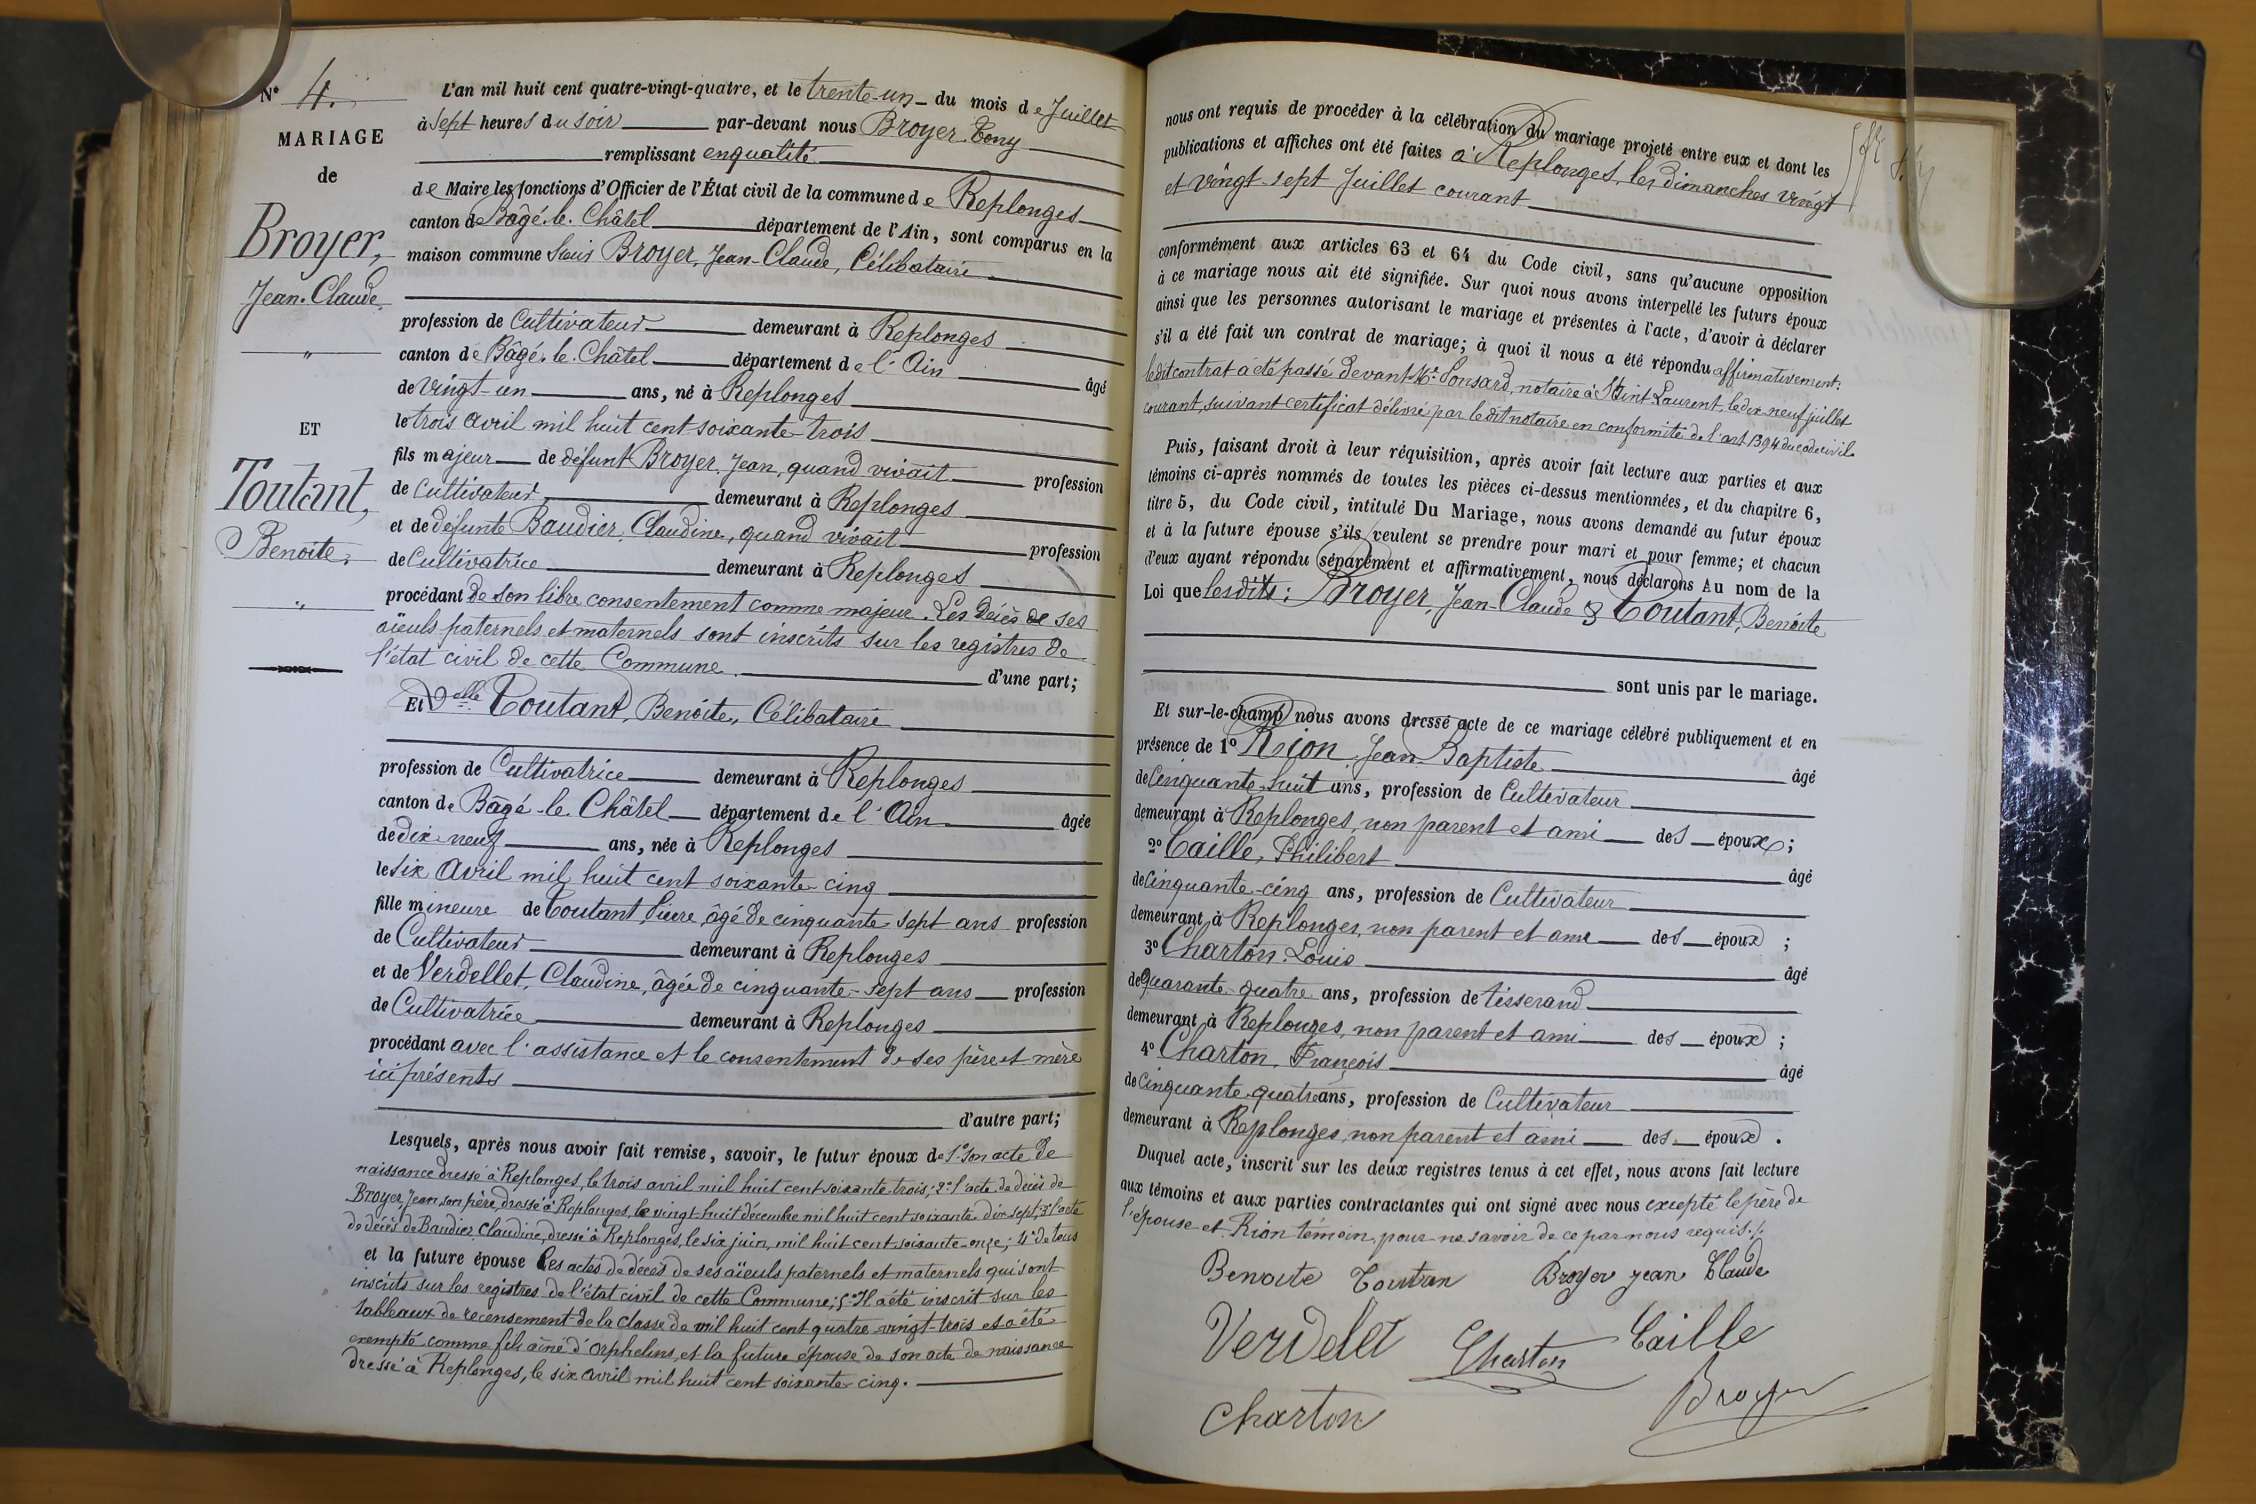 N° 4.
MARIAGE
de
Broyer,
Jean-Claude
"
ET
Toutant,
Benoite.
"
L'an mil huit cent quatre-vingt-quatre, et le trente-un du mois de Juillet
à Sept heures du soir par-devant nous Broyer Tony
remplissant en qualité
de Maire les fonctions d'Officier de l'État civil de la commune de Replonges
canton de Bâgé-le-Châtel département de l'Ain, sont comparus en la
maison commune Sieur Broyer, Jean-Claude, Célibataire
profession de Cultivateur demeurant à Replonges
canton de Bâgé-le-Châtel département de l'Ain âgé
de vingt-un ans, né à Replonges
le trois avril mil huit cent soixante-trois
fils majeur de défunt Broyer, Jean, quand vivait profession
de Cultivateur demeurant à Replonges
et de défunte Baudier, Claudine, quand vivait profession
de Cultivatrice demeurant à Replonges
procédant de son libre consentement comme majeur. Les décès de ses
aïeuls paternels et maternels sont inscrits sur les registres de
l'état civil de cette Commune d'une part;
Et Delle Toutant, Benoite, Célibataire
profession de Cultivatrice demeurant à Replonges
canton de Bâgé-le-Châtel département de l'Ain âgée
de dix-neuf ans, née à Replonges
le six Avril mil huit cent soixante-cinq
fille mineure de Toutant, Pierre, âgé de cinquante-sept ans profession
de Cultivateur demeurant à Replonges
et de Verdellet, Claudine, âgée de cinquante-sept ans profession
de Cultivatrice demeurant à Replonges
procédant avec l'assistance et le consentement de ses père et mère
ici présents
d'autre part;
Lesquels, après nous avoir fait remise, savoir, le futur époux de 1° son acte de
naissance dressé à Replonges, le trois avril mil huit cent soixante-trois; 2° l'acte de décès de
Broyer, Jean, son père, dressé à Replonges, le vingt-huit décembre mil huit cent soixante-dix-sept; 3° l'acte
de décès de Baudier, Claudine, dressé à Replonges, le six juin, mil huit cent soixante-onze; 4° de tous
et la future épouse les actes de décès de ses aïeuls paternels et maternels qui sont
inscrits sur les registres de l'état civil de cette Commune; 5° Il a été inscrit sur les
tableaux de recensement de la classe de mil huit cent quatre-vingt-trois et a été
exempté comme fils aîné d'orphelins, et la future épouse de son acte de naissance
dressé à Replonges, le six avril mil huit cent soixante-cinq.
nous ont requis de procéder à la célébration du mariage projeté entre eux et dont les
publications et affiches ont été faites à Replonges, les dimanches vingt
et vingt-sept Juillet courant
conformément aux articles 63 et 64 du Code civil, sans qu'aucune opposition
à ce mariage nous ait été signifiée. Sur quoi nous avons interpellé les futurs époux
ainsi que les personnes autorisant le mariage et présentes à l'acte, d'avoir à déclarer
s'il a été fait un contrat de mariage; à quoi il nous a été répondu affirmativement:
ledit contrat a été passé devant Me Ponsard, notaire à Saint Laurent, le dix-neuf juillet
courant, suivant certificat délivré par ledit notaire en conformité de l'art 1394 du code civil
Puis, faisant droit à leur réquisition, après avoir fait lecture aux parties et aux
témoins ci-après nommés de toutes les pièces ci-dessus mentionnées, et du chapitre 6,
titre 5, du Code civil, intitulé Du Mariage, nous avons demandé au futur époux
et à la future épouse s'ils veulent se prendre pour mari et pour femme; et chacun
d'eux ayant répondu séparément et affirmativement, nous déclarons Au nom de la
Loi que lesdits: Broyer, Jean-Claude & Toutant, Benoite
sont unis par le mariage.
Et sur-le-champ nous avons dressé acte de ce mariage célébré publiquement et en
présence de 1° Rion, Jean-Baptiste âgé
de Cinquante-huit ans, profession de Cultivateur
demeurant à Replonges, non parent et ami des époux;
2° Caille, Philibert âgé
de Cinquante-cinq ans, profession de Cultivateur
demeurant à Replonges, non parent et ami des époux;
3° Charton Louis âgé
de Quarante-quatre ans, profession de tisserand
demeurant à Replonges, non parent et ami des époux;
4° Charton, François âgé
de Cinquante-quatre ans, profession de Cultivateur
demeurant à Replonges, non parent et ami des époux.
Duquel acte, inscrit sur les deux registres tenus à cet effet, nous avons fait lecture
aux témoins et aux parties contractantes qui ont signé avec nous excepté le père de
l'épouse et Rion témoin, pour ne savoir de ce par nous requis.
Benoite Toutan Broyer jean Claude
Verdelet Charton Caille
Charton Broyer